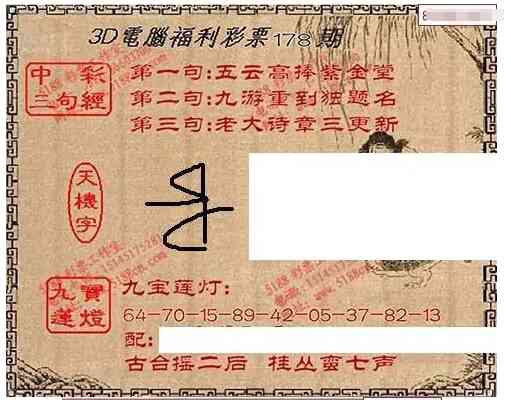 3D電腦福利彩票178期
中彩
三句經
第一句:五云高捧紫金堂
第二句:九游重到独题名
第三句:老大诗章三更新
天機字
九寶
蓮燈
九宝莲灯:
64-70-15-89-42-05-37-82-13
配:
古台摇二后 桂丛蛮七声